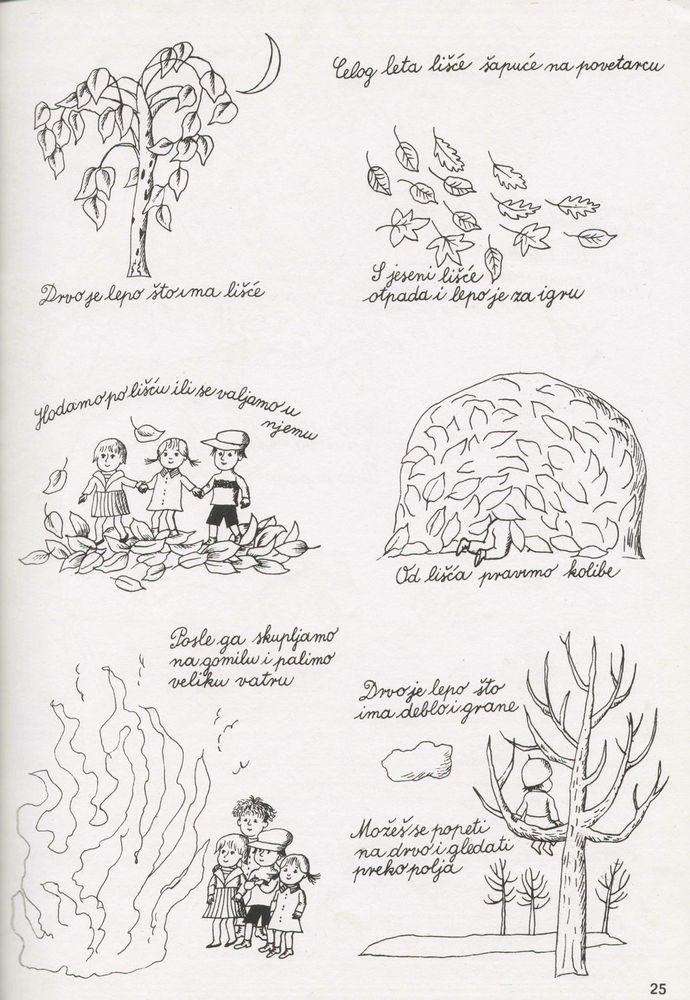 Celog leta lišće šapuće na povetarcu
Drvo je lepo što ima lišće
S jeseni lišće
otpada i lepo je za igru
Hodamo po lišću ili se valjamo u
njemu
Od lišća pravimo kolibe
Posle ga skupljamo
na gomilu i palimo
veliku vatru
Drvo je lepo što
ima deblo i grane
Možeš se popeti
na drvo i gledati
preko polja
25